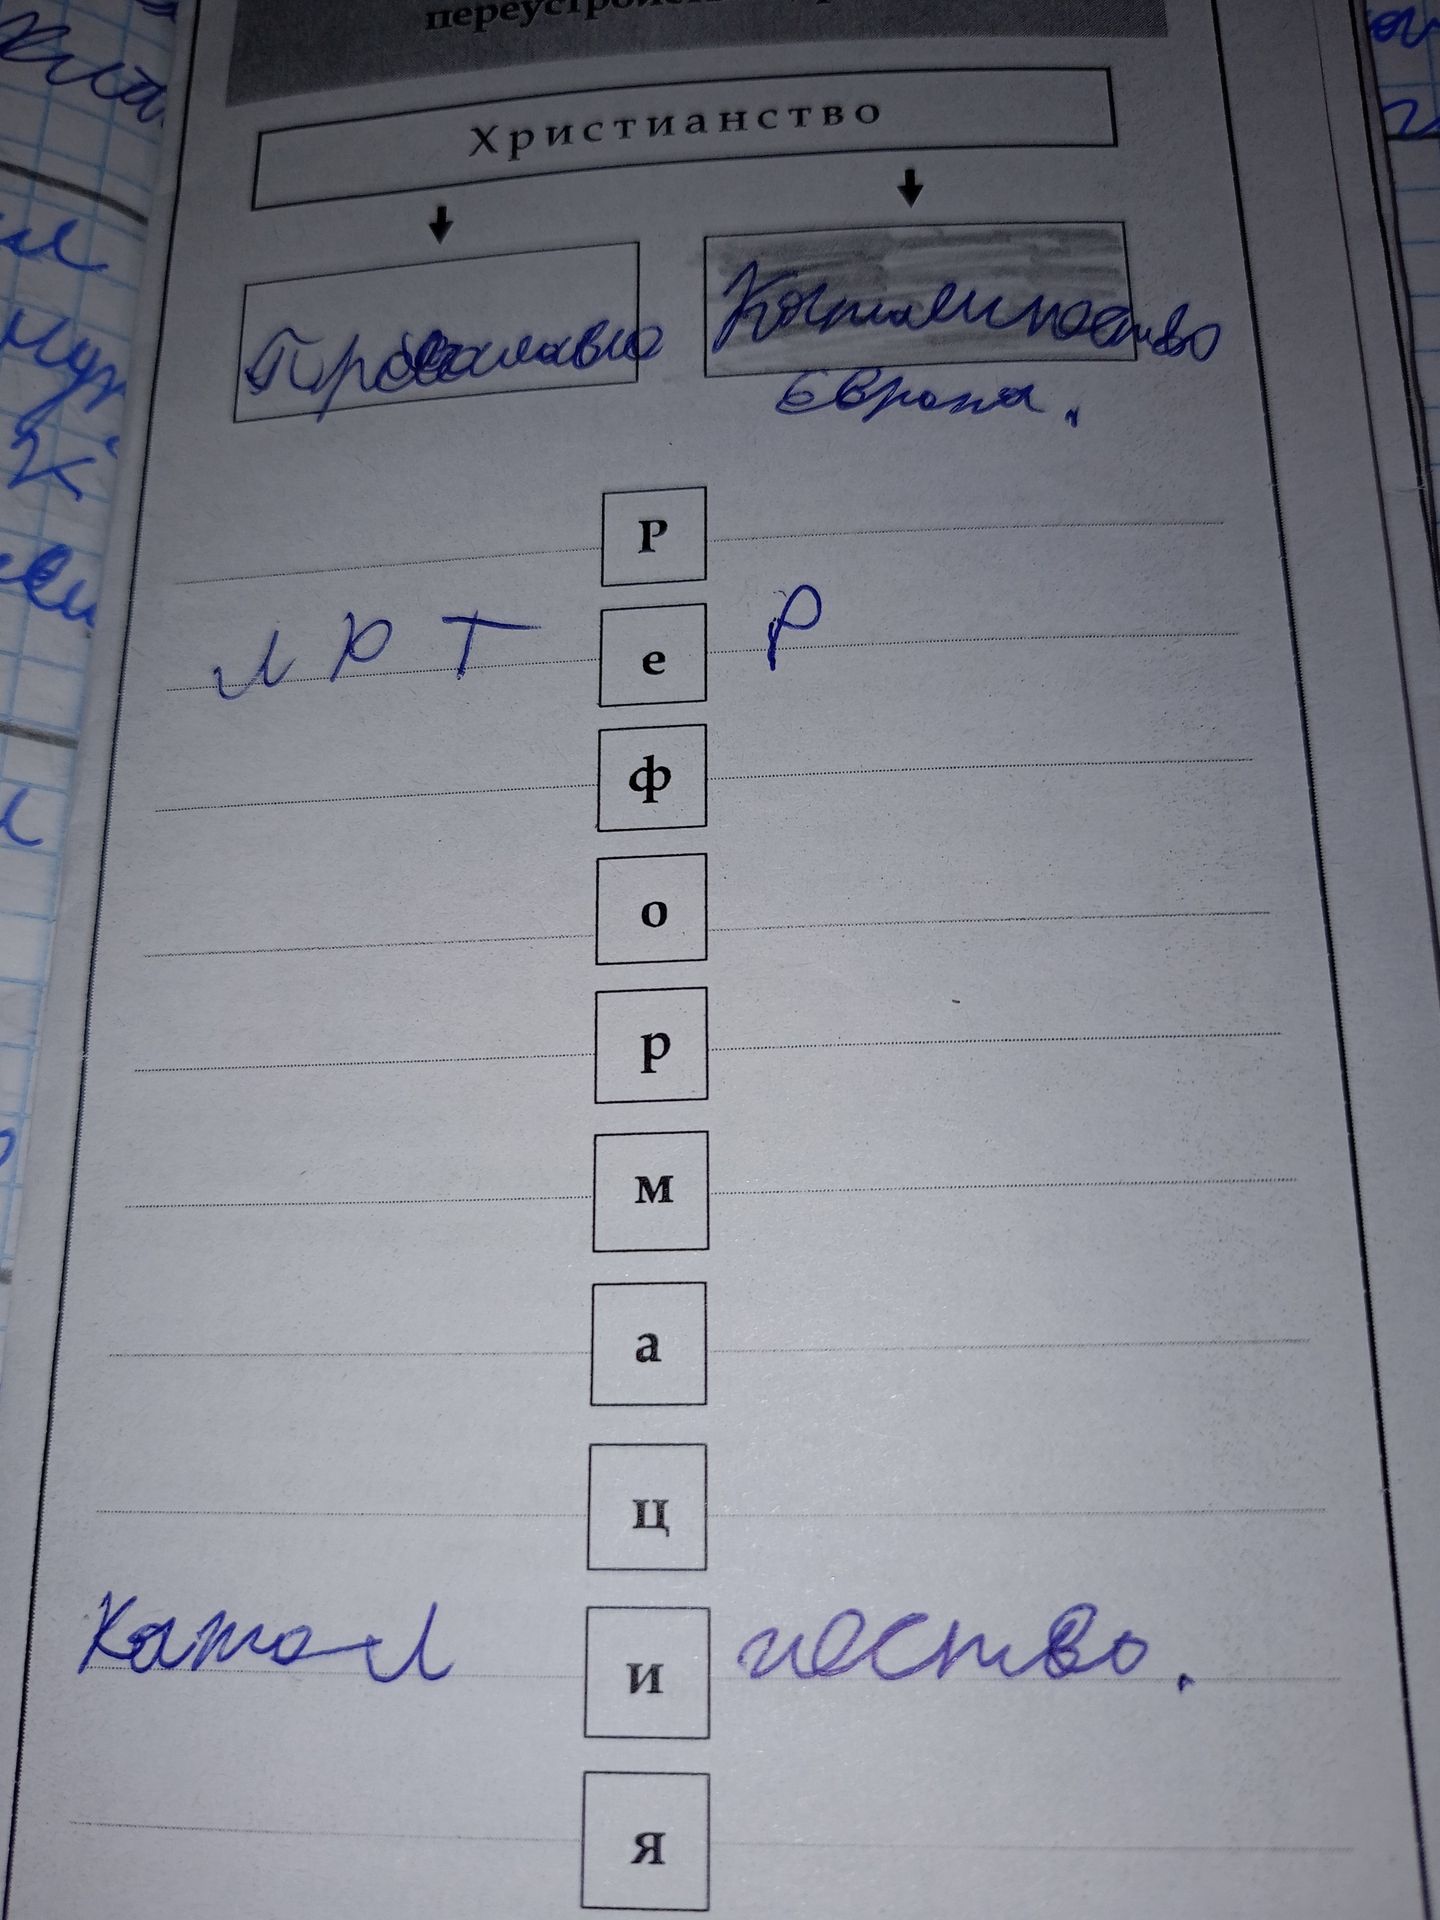 Христианство
Православие Католичество
Европа.
Р
Л Ю Т е Р
ф
о
р
м
а
ц
Катол и чество.
я